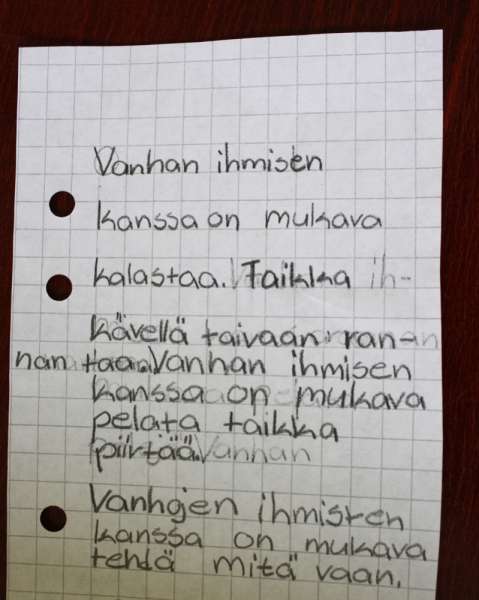 Vanhan ihmisen
kanssa on mukava
kalastaa. Taikka ih-
kävellä taivaan ran-
nan taa. Vanhan ihmisen
kanssa on mukava
pelata taikka
piirtää. Vanhan
Vanhojen ihmisten
kanssa on mukava
tehdä mitä vaan.